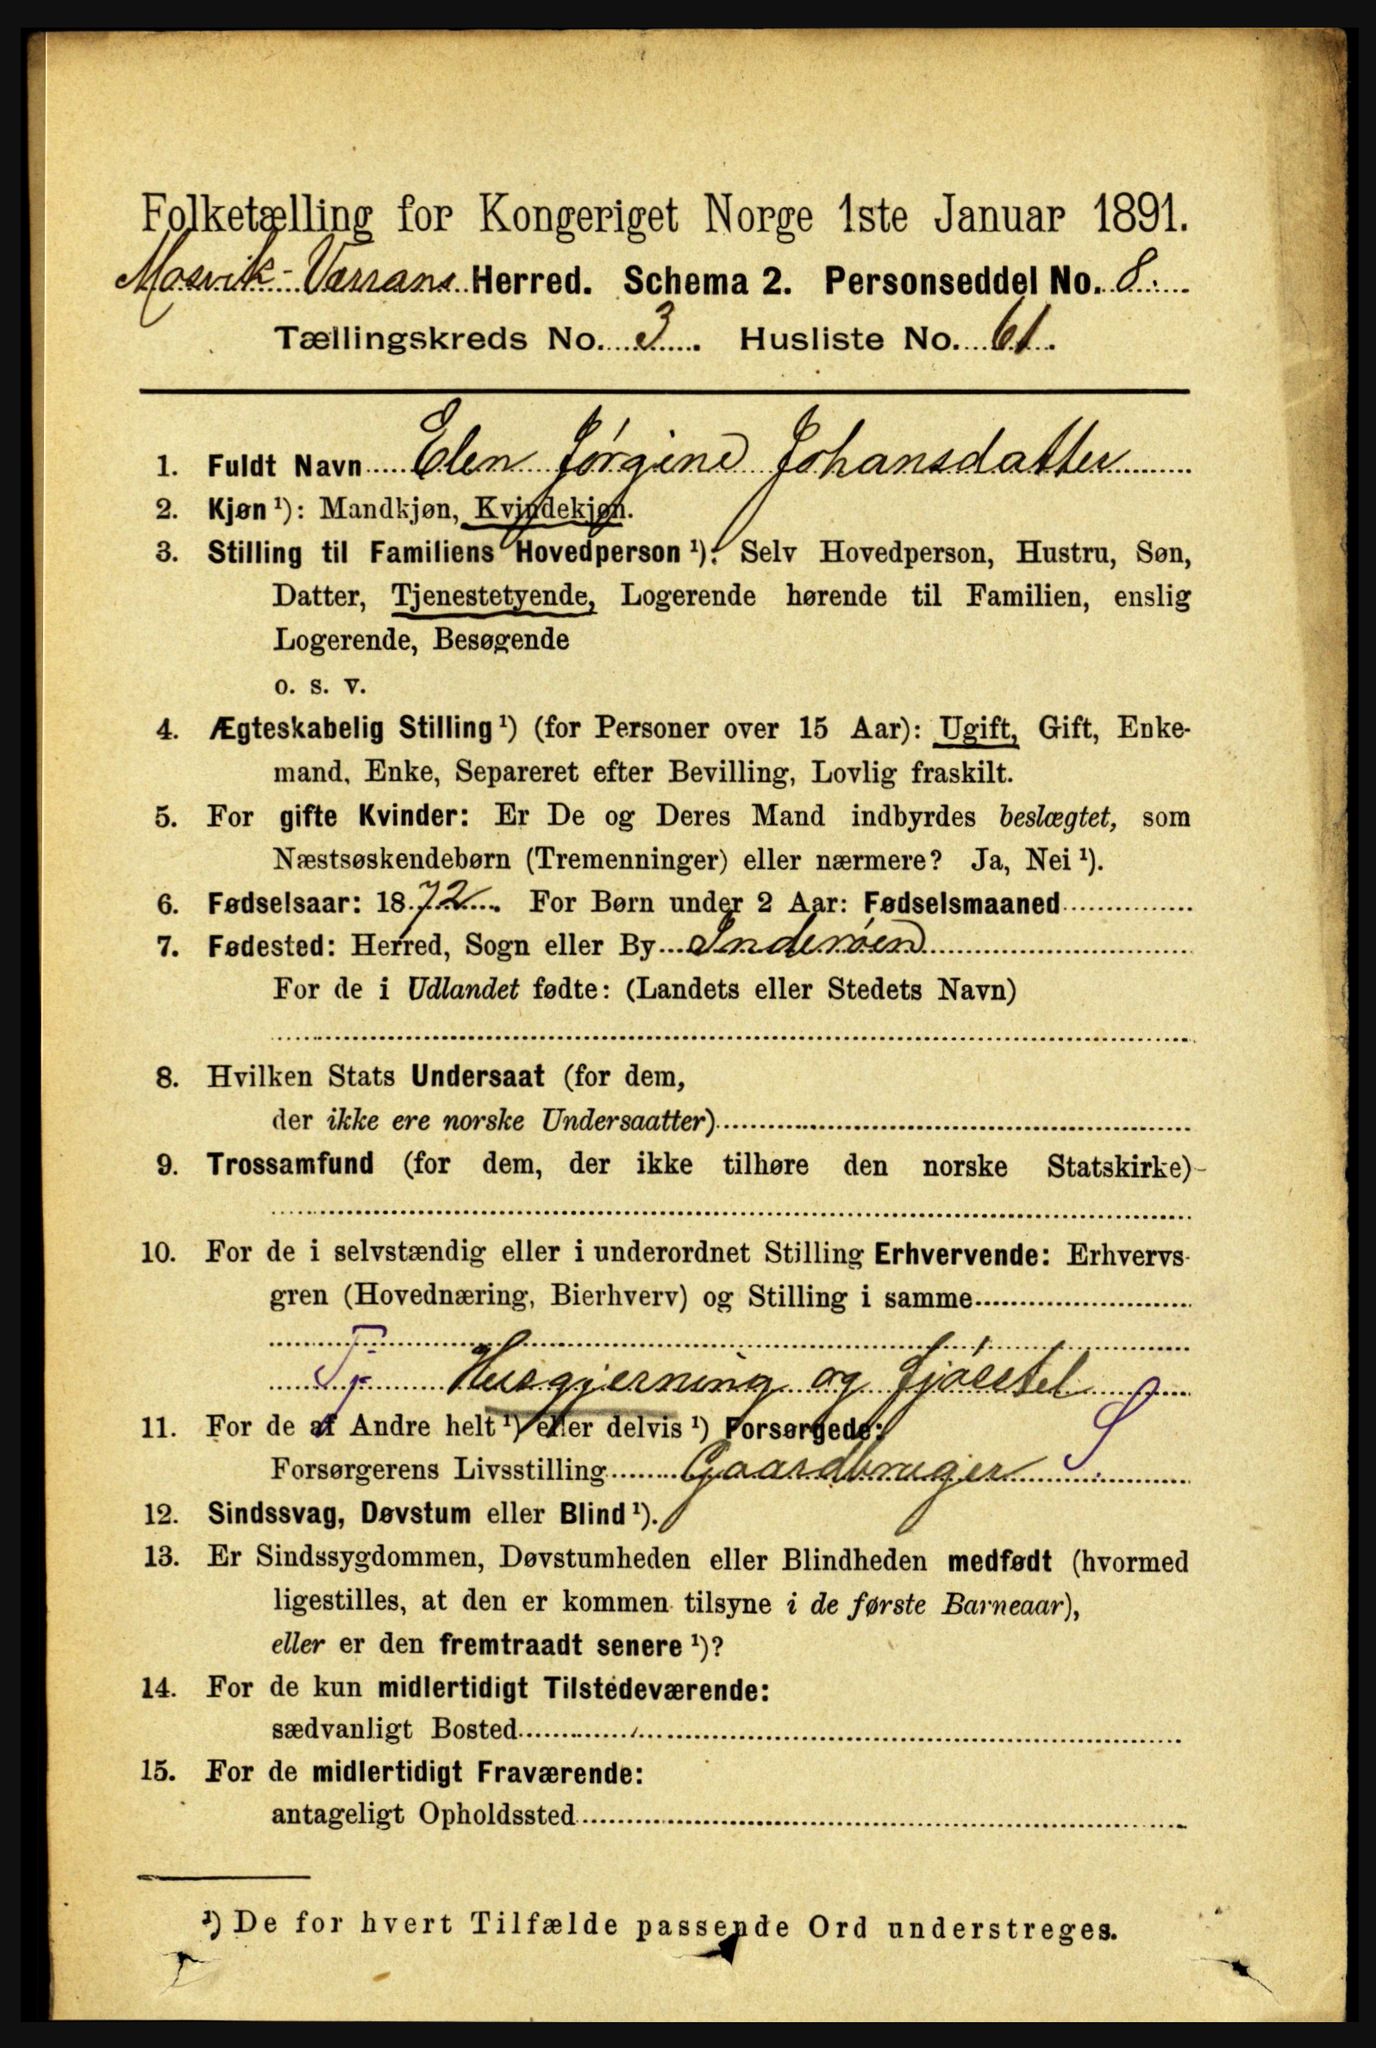 Folketælling for Kongeriget Norge 1ste Januar 1891.
Mosvik-Værrans Herred. Schema 2. Personseddel No. 8.
Tællingskreds No. 3. Husliste No. 61.
1. Fuldt Navn Elen Jørgine Johansdatter
2. Kjøn ¹): Mandkjøn, Kvindekjøn.
3. Stilling til Familiens Hovedperson ¹): Selv Hovedperson, Hustru, Søn,
Datter, Tjenestetyende, Logerende hørende til Familien, enslig
Logerende, Besøgende
o. s. v.
4. Ægteskabelig Stilling ¹) (for Personer over 15 Aar): Ugift, Gift, Enke-
mand, Enke, Separeret efter Bevilling, Lovlig fraskilt.
5. For gifte Kvinder: Er De og Deres Mand indbyrdes beslægtet, som
Næstsøskendebørn (Tremenninger) eller nærmere? Ja, Nei ¹).
6. Fødselsaar: 1872. For Børn under 2 Aar: Fødselsmaaned
7. Fødested: Herred, Sogn eller By Inderøen
For de i Udlandet fødte: (Landets eller Stedets Navn)
8. Hvilken Stats Undersaat (for dem,
der ikke ere norske Undersaatter)
9. Trossamfund (for dem, der ikke tilhøre den norske Statskirke)
10. For de i selvstændig eller i underordnet Stilling Erhvervende: Erhvervs-
gren (Hovednæring, Bierhverv) og Stilling i samme
Tj Husgjerning og fjøsstel
11. For de af Andre helt ¹) eller delvis ¹) Forsørgede:
Forsørgerens Livsstilling Gaardbruger S
12. Sindssvag, Døvstum eller Blind ¹).
13. Er Sindssygdommen, Døvstumheden eller Blindheden medfødt (hvormed
ligestilles, at den er kommen tilsyne i de første Barneaar),
eller er den fremtraadt senere ¹)?
14. For de kun midlertidigt Tilstedeværende:
sædvanligt Bosted
15. For de midlertidigt Fraværende:
antageligt Opholdssted
¹) De for hvert Tilfælde passende Ord understreges.